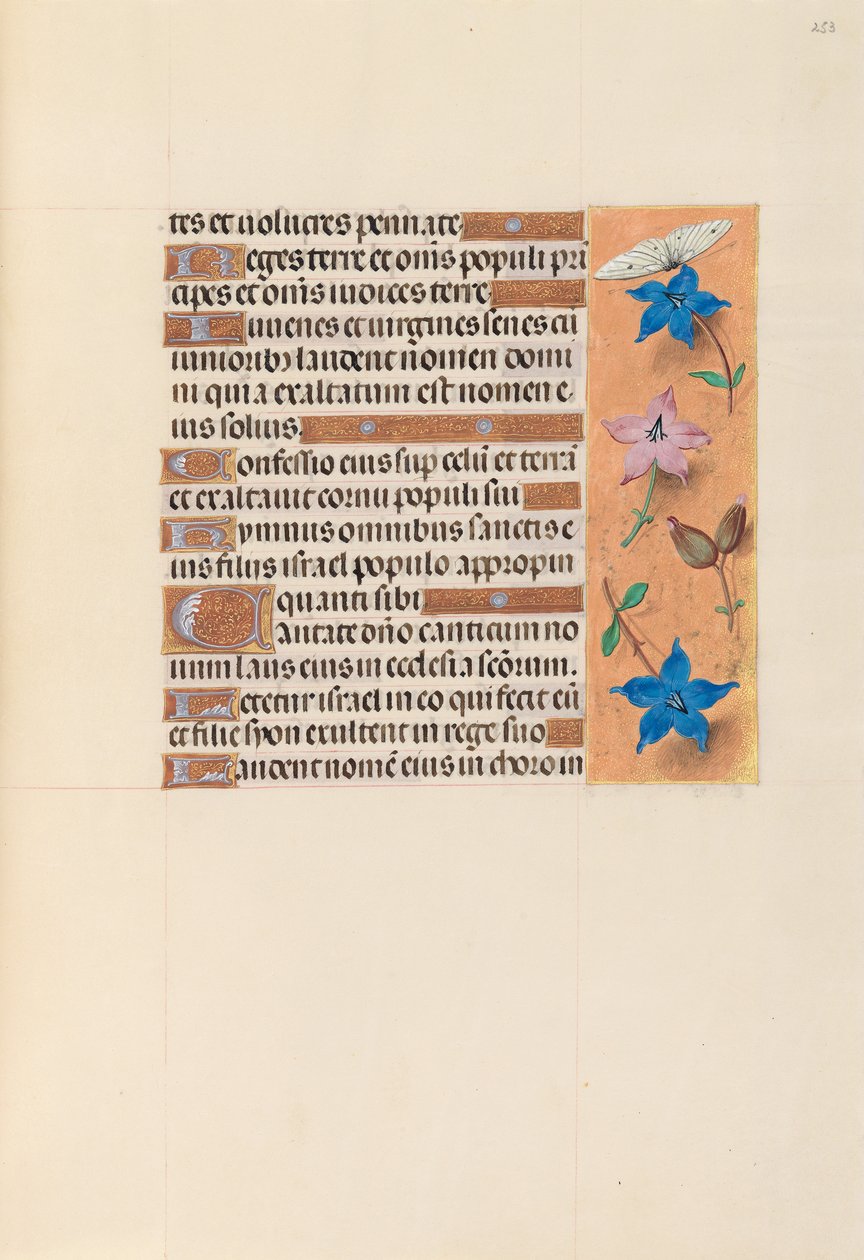 253
tes et uolucres pennate
Reges terre et om̄s populi pri
cipes et om̄s iudices terre
Iuuenes et uirgines senes cū
iuniorib₃ laudent nomen domi
ni quia exaltatum est nomen e
ius solius.
Confessio eius sup celū et terrā
et exaltauit cornu populi sui
Hymnus omnibus sanctis e
ius filijs israel populo appropin
quanti sibi
Cantate dn̄o canticum no
uum laus eius in ecclesia scōrum.
Letetur israel in eo qui fecit eū
et filie syon exultent in rege suo
Laudent nomē eius in choro in